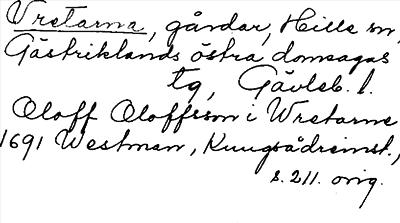 Vretarna, gårdar, Hille sn,
Gästriklands östra domsagas
tg, Gävleb. l.
Oloff Oloffsson i Wretarne
1691 Westman, Kungsådreinst.,
s. 211. orig.